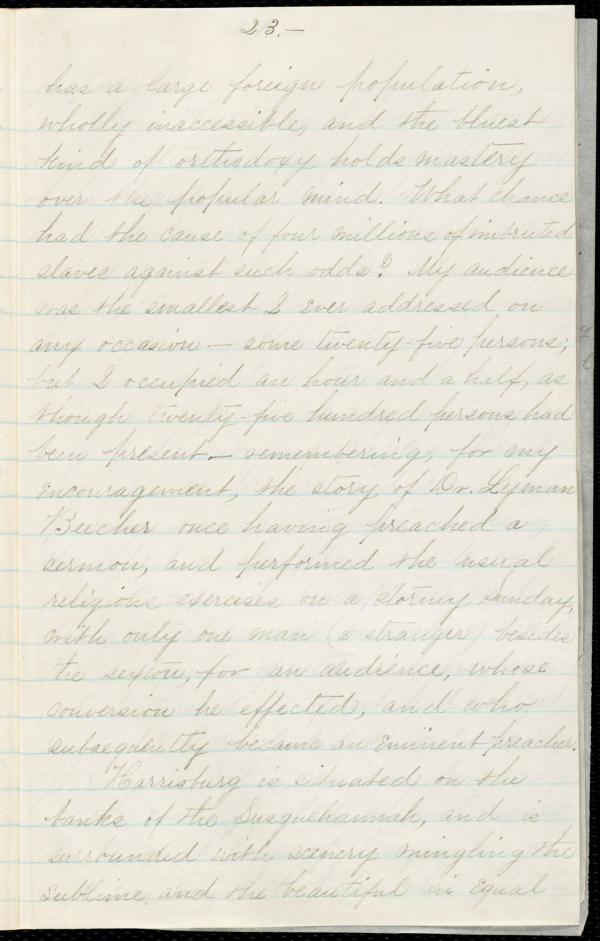 23.—
has a large foreign population,
wholly inaccessible, and the bluest
kind of orthodoxy holds mastery
over the popular mind. What chance
had the cause of four millions of imbruted
slaves against such odds? My audience
was the smallest I ever addressed on
any occasion — some twenty-five persons;
but I occupied an hour and a half, as
though twenty-five hundred persons had
been present — remembering, for my
encouragement, the story of Dr. Lyman
Beecher once having preached a
sermon, and performed the usual
religious exercises on a stormy Sunday,
with only one man (a stranger) besides
the sexton, for an audience, whose
conversion he effected, and who
subsequently became an eminent preacher.
Harrisburg is situated on the
banks of the Susquehannah, and is
surrounded with scenery mingling the
sublime and the beautiful in equal